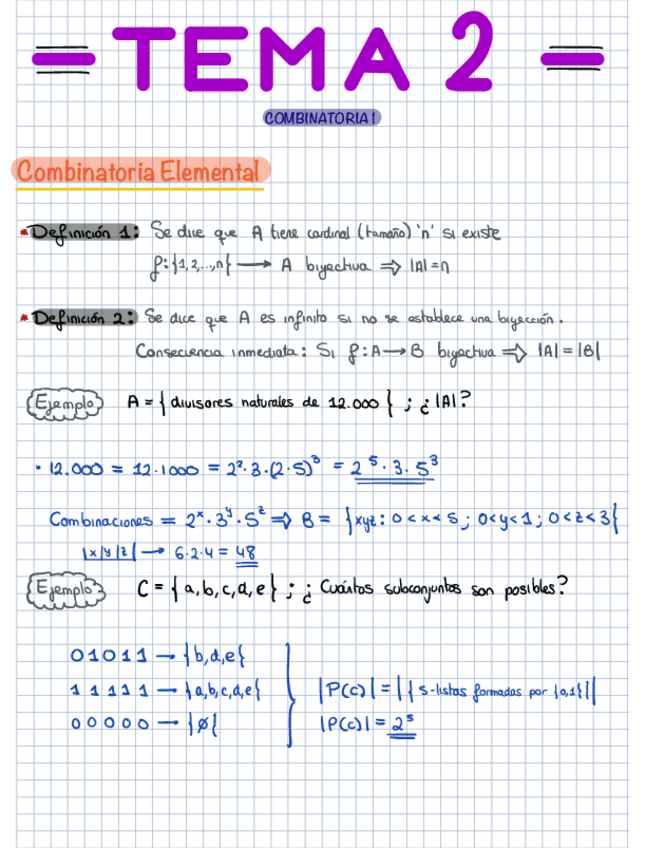 = TEMA 2 =
COMBINATORIA I
Combinatoria Elemental
* Definición 1: Se dice que A tiene cardinal (tamaño) 'n' si existe
f: {1,2,...,n} → A biyectiva ⇒ |A|=n
* Definición 2: Se dice que A es infinito si no se establece una biyección.
Consecuencia inmediata: Si f: A → B biyectiva ⇒ |A| = |B|
Ejemplo A = { divisores naturales de 12.000 } ; ¿|A|?
· 12.000 = 12·1000 = 2²·3·(2·5)³ = 2⁵·3·5³
Combinaciones = 2ˣ·3ʸ·5ᶻ ⇒ B = {xyz: 0<x<5; 0<y<1; 0<z<3}
|x|y|z| → 6·2·4 = 48
Ejemplo C = {a,b,c,d,e} ; ¿Cuántos subconjuntos son posibles?
01011 → {b,d,e}
11111 → {a,b,c,d,e}
00000 → {ø}
|P(c)| = |{5-listas formadas por {0,1}}|
|P(c)| = 2⁵